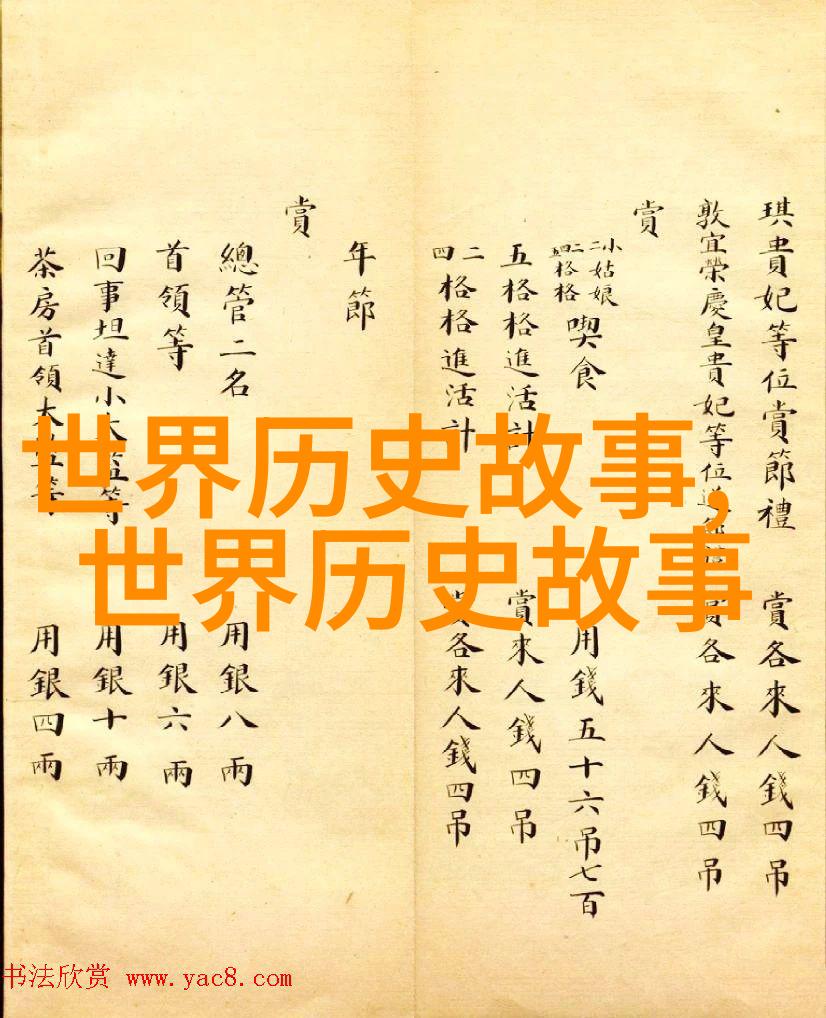 琪貴妃等位賞節禮 賞各來人錢四吊
敦宜榮慶皇貴妃等位 賞各來人錢四吊
賞
小姑娘
二
二格格
四格格
喫食 用錢五十六吊七百
五格格進活計 賞來人錢四吊
二
四
格格進活計 賞各來人錢四吊
年節
賞
總管二名 用銀八兩
首領等 用銀六兩
回事坦達小太等 用銀十兩
茶房首領太等 用銀四兩
世界历史故事,
世界历史故事
书法欣赏 www.yac8.com